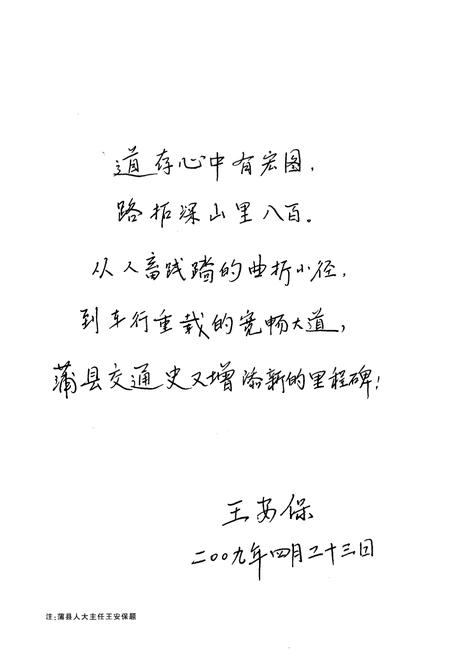 道存心中有宏图，
路拓深山里八百。
从人畜践踏的曲折小径，
到车行重载的宽畅大道，
蒲县交通史又增添新的里程碑！
王安保
二〇〇九年四月二十三日
注：蒲县人大主任王安保题